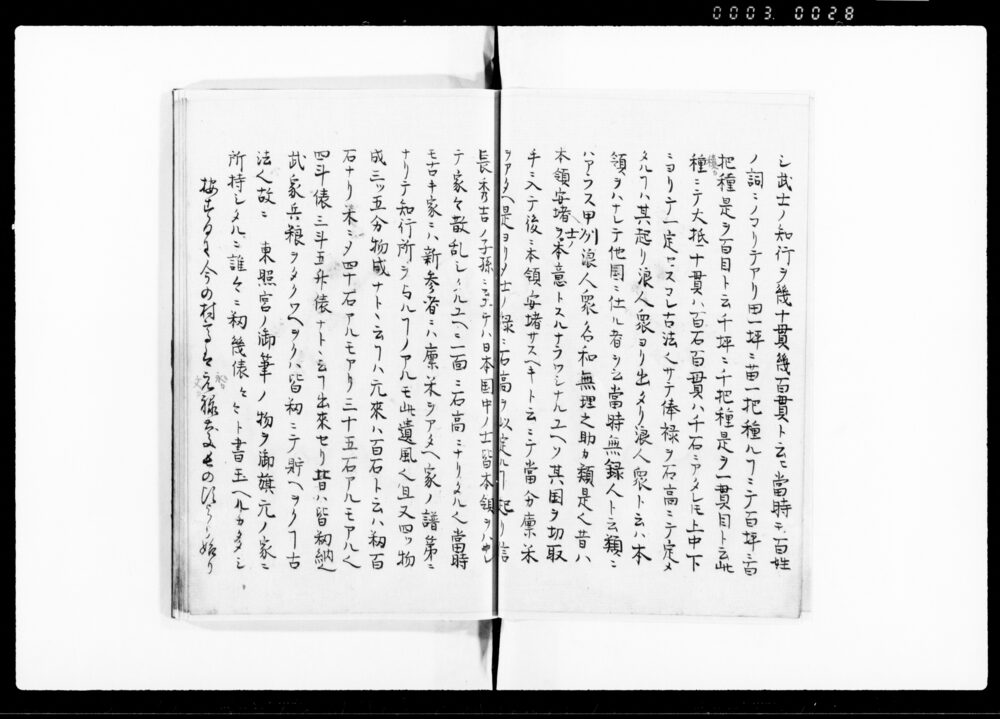 0003 0028
シ武士ノ知行ヲ幾十貫幾百貫ト云ヒ當時モ百姓
ノ詞ニノコリテアリ田一坪ニ苗一把種ルフニテ百坪ニ百
把種是ヲ百目ト云千坪ニ千把種是ヲ一貫目ト云此
種ニテ大抵十貫ハ百石百貫ハ千石ニアタレ𪜈上中下
ニヨリテ一定ニスコレ古法也サテ俸禄ヲ石高ニテ定メ
タルフハ其起リ浪人衆ヨリ出タリ浪人衆ト云ハ本
領ヲハナレテ他国ニ仕ル者ヲ云當時無録人ト云類ニ
ハアラス甲州浪人衆名和無理之助カ類是也昔ハ
本領安堵ヲ士ノ本意トスルナラワシナルユヘソ其国ヲ切取
手ニ入テ後ニ本領安堵サスヘキト云ニテ當分廪米
ヲアタヘ是ヨリメ士ノ禄ニ石高ヲ以定ルフ起リ信
長秀吉ノ子孫ニ至テハ日本国中ノ士皆本領ヲハナレ
テ家々散乱シタルユヘニ一面ニ石高ニナリタル也當時
モ古キ家ニハ新参者ニハ廪米ヲアタヘ家ノ譜第ニ
ナリテ知行所ヲ与ルフノアルモ此遺風也且又四ツ物
成三ツ五分物成ナトヽ云フハ元來ハ百石ト云ハ籾百
石ナリ米ニメ四十石アルモアリ三十五石アルモアル也
四斗俵三斗五升俵ナトヽ云フ出來セリ昔ハ皆籾納也
武家兵粮ヲタクワヘヲクハ皆籾ニテ貯ヘヲクフ古
法也故ニ 東照宮ノ御筆ノ物ヲ御旗元ノ家ニ
所持シタルニ誰々ニ籾幾俵々々ト書玉ヘルカ多シ
按するに今の村高は元禄